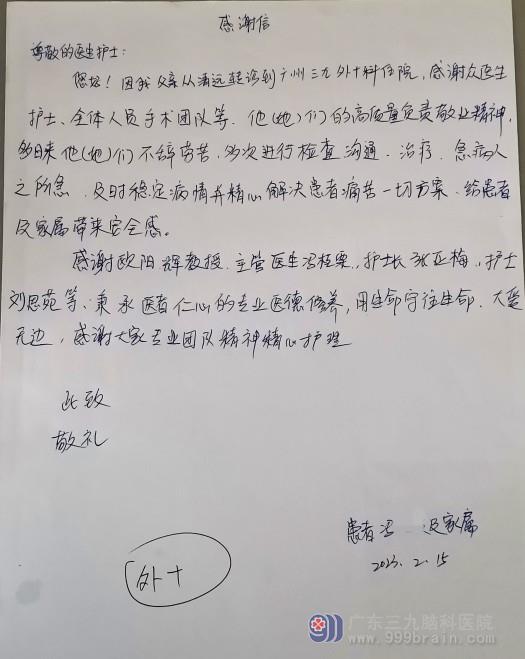 感谢信
尊敬的医生护士：
您好！因我父亲从清远转诊到广州三九外十科住院，感谢众医生
护士、全体人员手术团队等、他(她)们的高质量负责敬业精神，
多日来他(她)们不辞劳苦，多次进行检查、沟通、治疗、急病人
之所急、及时稳定病情并精心解决患者痛苦一切方案、给患者
及家属带来安全感。
感谢欧阳辉教授、主管医生冯桂栗、护士长张亚梅、护士
刘思苑等、秉承医者仁心的专业医德修养，用生命守往生命、大爱
无边，感谢大家专业团队精神精心护理
此致
敬礼
患者冯 及家属
2023.2.15
外十
广东三九脑科医院
www.999brain.com